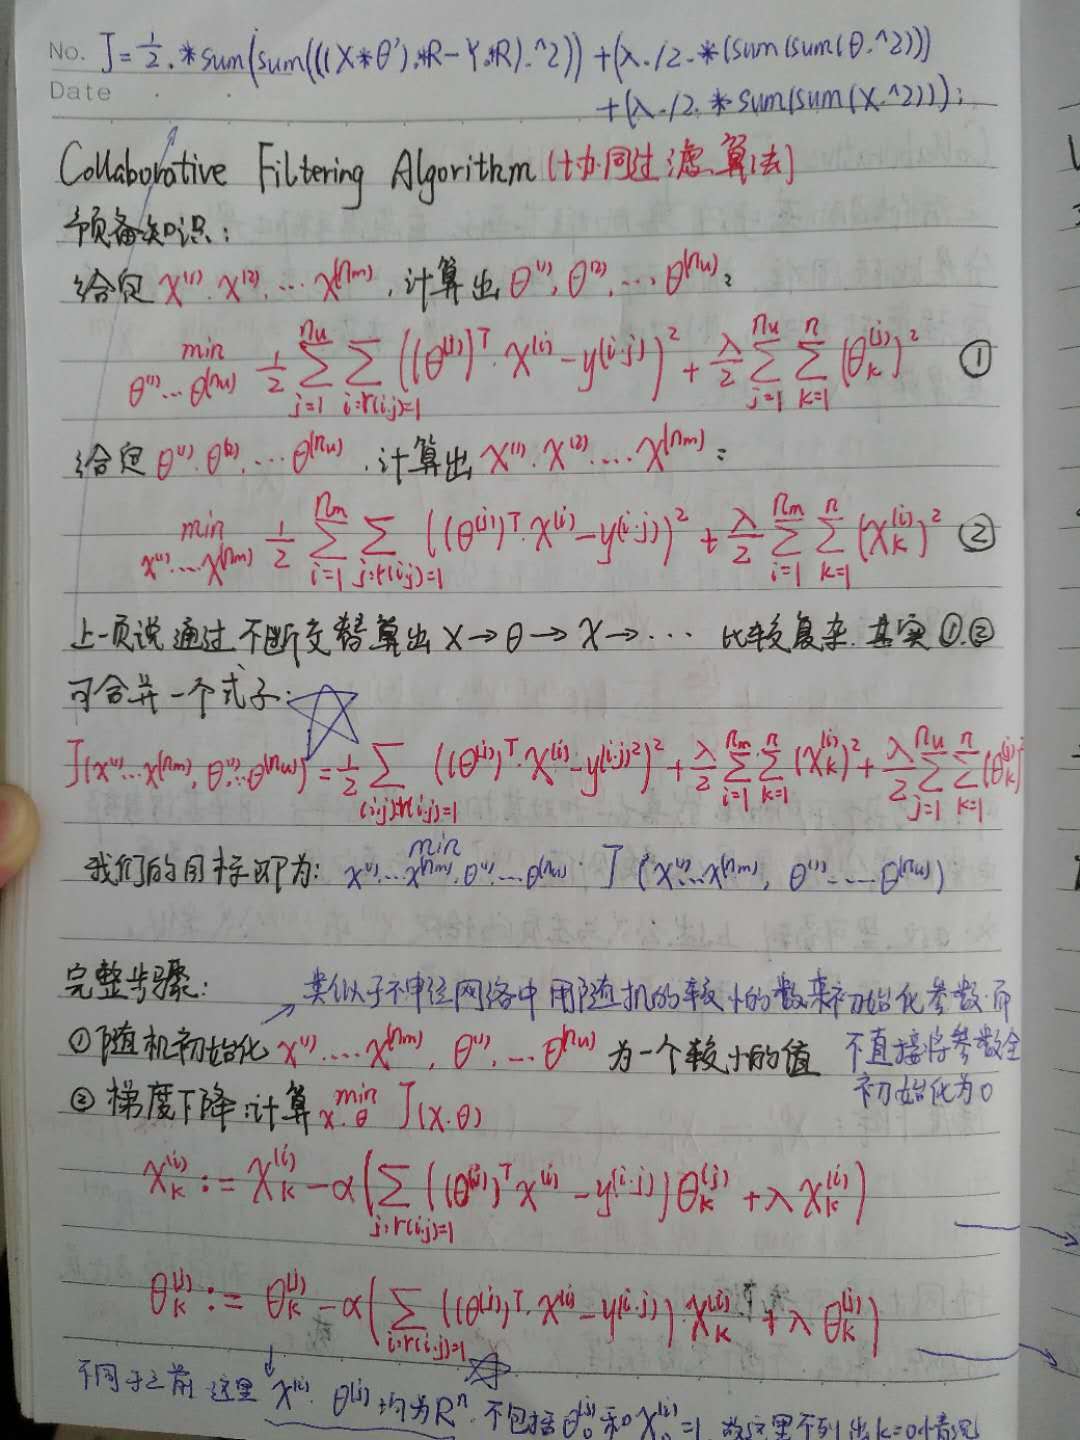 No. J = 1/2 .* sum(sum(((X*θ').*R-Y.*R).^2)) + (λ./2.*(sum(sum(θ.^2)))
Date + (λ./2.*sum(sum(X.^2)));
Collaborative Filtering Algorithm (协同过滤算法)
预备知识:
给定 x^(1), x^(2), ... x^(n_m), 计算出 θ^(1), θ^(2), ..., θ^(n_u):
min_{θ^(1)...θ^(n_u)} 1/2 Σ_{j=1}^{n_u} Σ_{i:r(i,j)=1} ((θ^(j))^T · x^(i) - y^(i,j))^2 + λ/2 Σ_{j=1}^{n_u} Σ_{k=1}^{n} (θ_k^(j))^2 ①
给定 θ^(1), θ^(2), ... θ^(n_u), 计算出 x^(1), x^(2), ... x^(n_m):
min_{x^(1)...x^(n_m)} 1/2 Σ_{i=1}^{n_m} Σ_{j:r(i,j)=1} ((θ^(j))^T · x^(i) - y^(i,j))^2 + λ/2 Σ_{i=1}^{n_m} Σ_{k=1}^{n} (x_k^(i))^2 ②
上一页说通过不断交替算出 x→θ→x→... 比较复杂. 其实①.②
可合并一个式子:
J(x^(1)...x^(n_m), θ^(1)...θ^(n_u)) = 1/2 Σ_{(i,j):r(i,j)=1} ((θ^(j))^T · x^(i) - y^(i,j)^2)^2 + λ/2 Σ_{i=1}^{n_m} Σ_{k=1}^{n} (x_k^(i))^2 + λ/2 Σ_{j=1}^{n_u} Σ_{k=1}^{n} (θ_k^(j))^2
我们的目标即为: min_{x^(1)...x^(n_m), θ^(1)...θ^(n_u)} J(x^(1)...x^(n_m), θ^(1)...θ^(n_u))
完整步骤: 类似于神经网络中用随机的较小的数来初始化参数.而
①随机初始化 x^(1)....x^(n_m), θ^(1), ... θ^(n_u) 为一个较小的值 不直接将参数全
初始化为0
② 梯度下降:计算 min_{x,θ} J(x,θ)
x_k^(i) := x_k^(i) - α(Σ_{j:r(i,j)=1} ((θ^(j))^T x^(i) - y^(i,j)) θ_k^(j) + λ x_k^(i))
θ_k^(j) := θ_k^(j) - α(Σ_{i:r(i,j)=1} ((θ^(j))^T · x^(i) - y^(i,j)) x_k^(i) + λ θ_k^(j))
不同于之前 这里 x^(i). θ^(j) 均为R^n. 不包括θ_0^(j)和x_0^(i)=1. 故这里不列出k=0情况